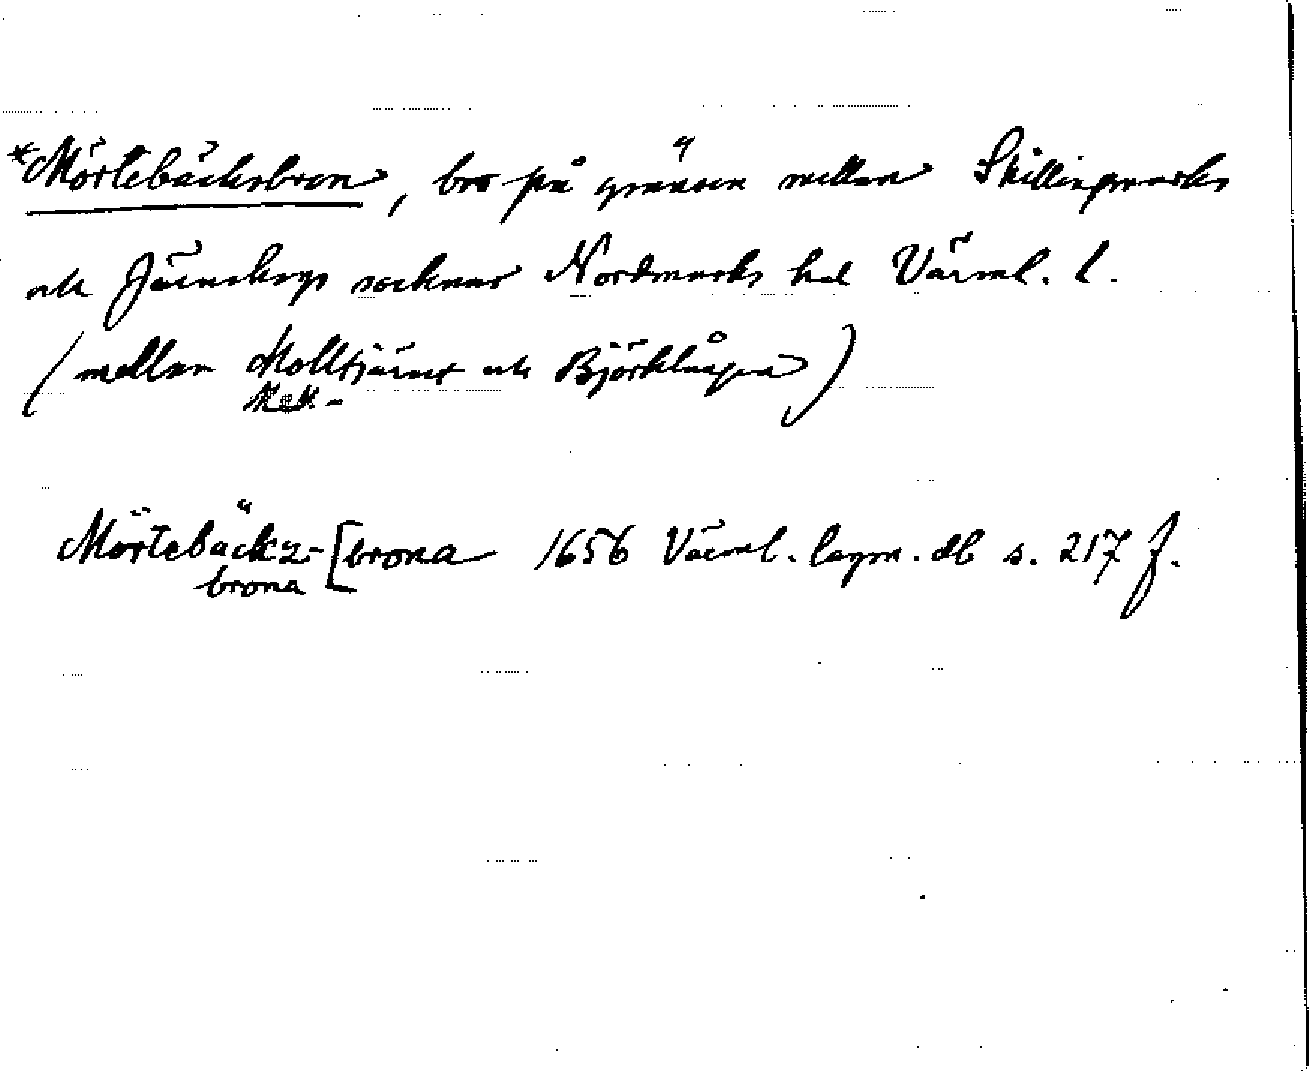 *Mörtebäcksbron, bro på gränsen mellan Skillingmarks
och Järnskogs socknar Nordmarks hd Värml. l.
(mellan Molltjärnet och Björklången)
Moll-
Mörtebäckz- [brona 1656 Värml. lagm. db s. 217 f.
brona